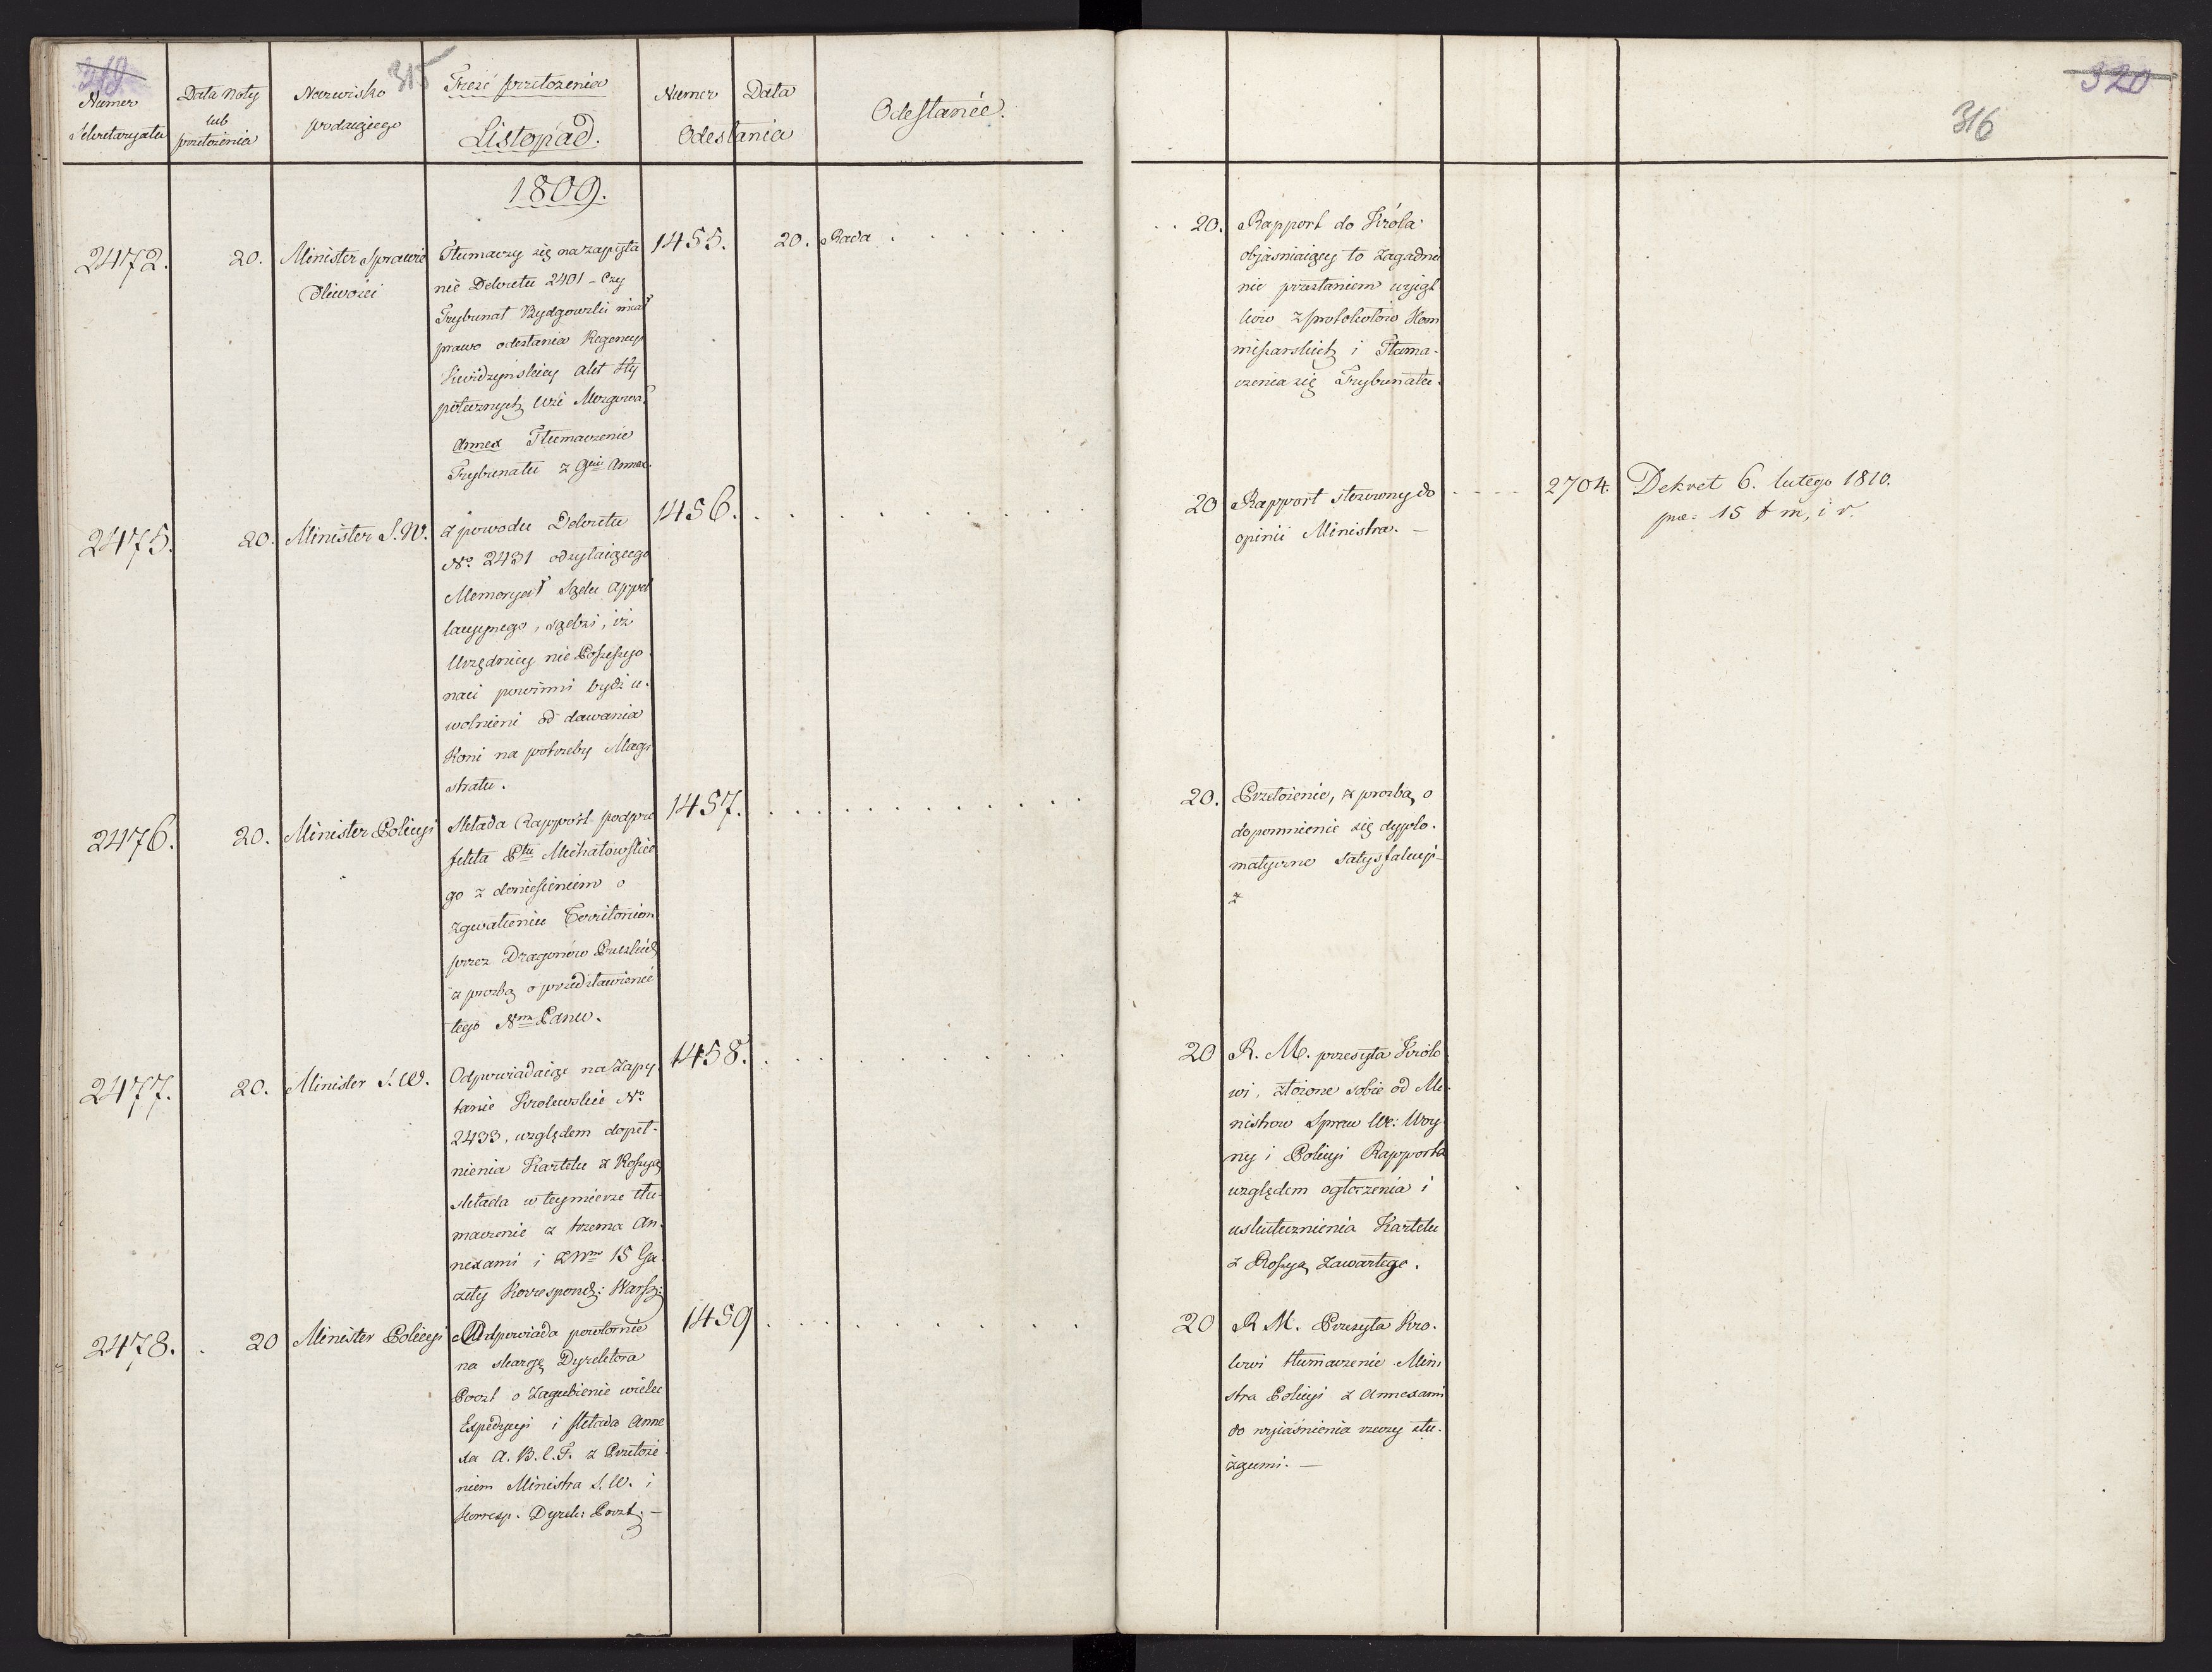 315
Numer Sekretaryatu
Data Noty lub przełożenia
Nazwisko podaiącego
Treść przełożenia
Listopad.
Numer Data
Odesłania
Odesłanie.
320
316
1809.
2472.
20.
Minister Sprawie
dliwości
Tłumaczy się na zapyta
nie Dekretu 2401 - Czy
Trybunał Bydgowski miał
prawo odesłania Regencyi
Kwidzyńskiey Akt Hy
potecznych Wsi
Annex Tłumaczenie
Trybunału z Annex.
1455.
20.
Rada
20.
Rapport do Króla
objaśniaiący to zagadnie
nie przesłaniem wyiąt
ków z protokołów Kom
missarskich i Tłuma-
czenia się Trybunału.
2475.
20.
Minister S. W.
z powodu Dekretu
No. 2431 odsyłaiącego
Memoryał Sądu Appel
lacyynego, sądzi, iż
Urzędnicy nie Possessyo
naci powinni bydź u-
wolnieni od dawania
Koni na potrzeby Magi
stratu.
1456.
20
Rapport stosowny do
opinii Ministra. -
2704.
Dekret 6. lutego 1810.
15 t m, i r.
2476.
20.
Minister Policyi
Składa Rapport podpre
fekta Ptu Michałowskie
go z doniesieniem o
zgwałceniu Territorium
przez Dragonów Pruskich
z prozbą o przedstawienie
tego Nmu Panu.
1457.
20.
Przełożenie, z prozbą o
dopomnienie się dyplo-
matyczne satysfakcyi -
z
2477.
20.
Minister S. W.
Odpowiadaiąc na Zapy-
tanie Krolewskie No
2433, względem dopeł-
nienia Kartelu z Rossyą
składa w teymierze tłu-
maczenie z trzema An-
nexami i z Nrm 15 Ga
zety Korrespond: Warsz:
1458.
20
R. M. przesyła Królo
wi, złożone sobie od Mi-
nistrow Spraw We: Woy
ny i Policyi Rapporta
względem ogłoszenia i
uskutecznienia Kartelu
z Rossyą Zawartego.
2478.
20
Minister Policyi
Odpowiada powtornie
na skargę Dyrektora
Poczt o zagubienie wielu
Expedycyi i składa Anne
xa A. B. C. F. z Przełoże
niem Ministra S. W. i
Korresp. Dyrek: Poczt. -
1459
20
R M. Przesyła Kro-
lowi tłumaczenie Mini
stra Policyi z Annexami
do wyiaśnienia rzeczy słu-
żącemi. -